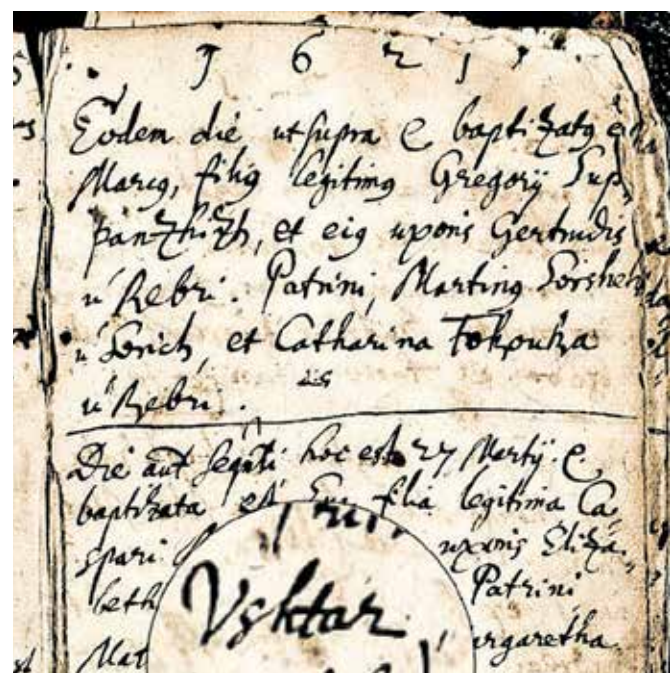 1 6 2 1.
Eodem die ut supra e baptizatus est
Marcus, filius legitimus Gregorij Sup=
panzhizh, et eius uxoris Gertrudis
u' Rebri. Patrini, Martinus
u' et Catharina
u' Rebri.
Die aut seqnti hoc est 27 Martij. e
baptizata est filia legitima Ca=
spari uxoris Eliza=
beth Patrini
Mat argaretha
Vshtar